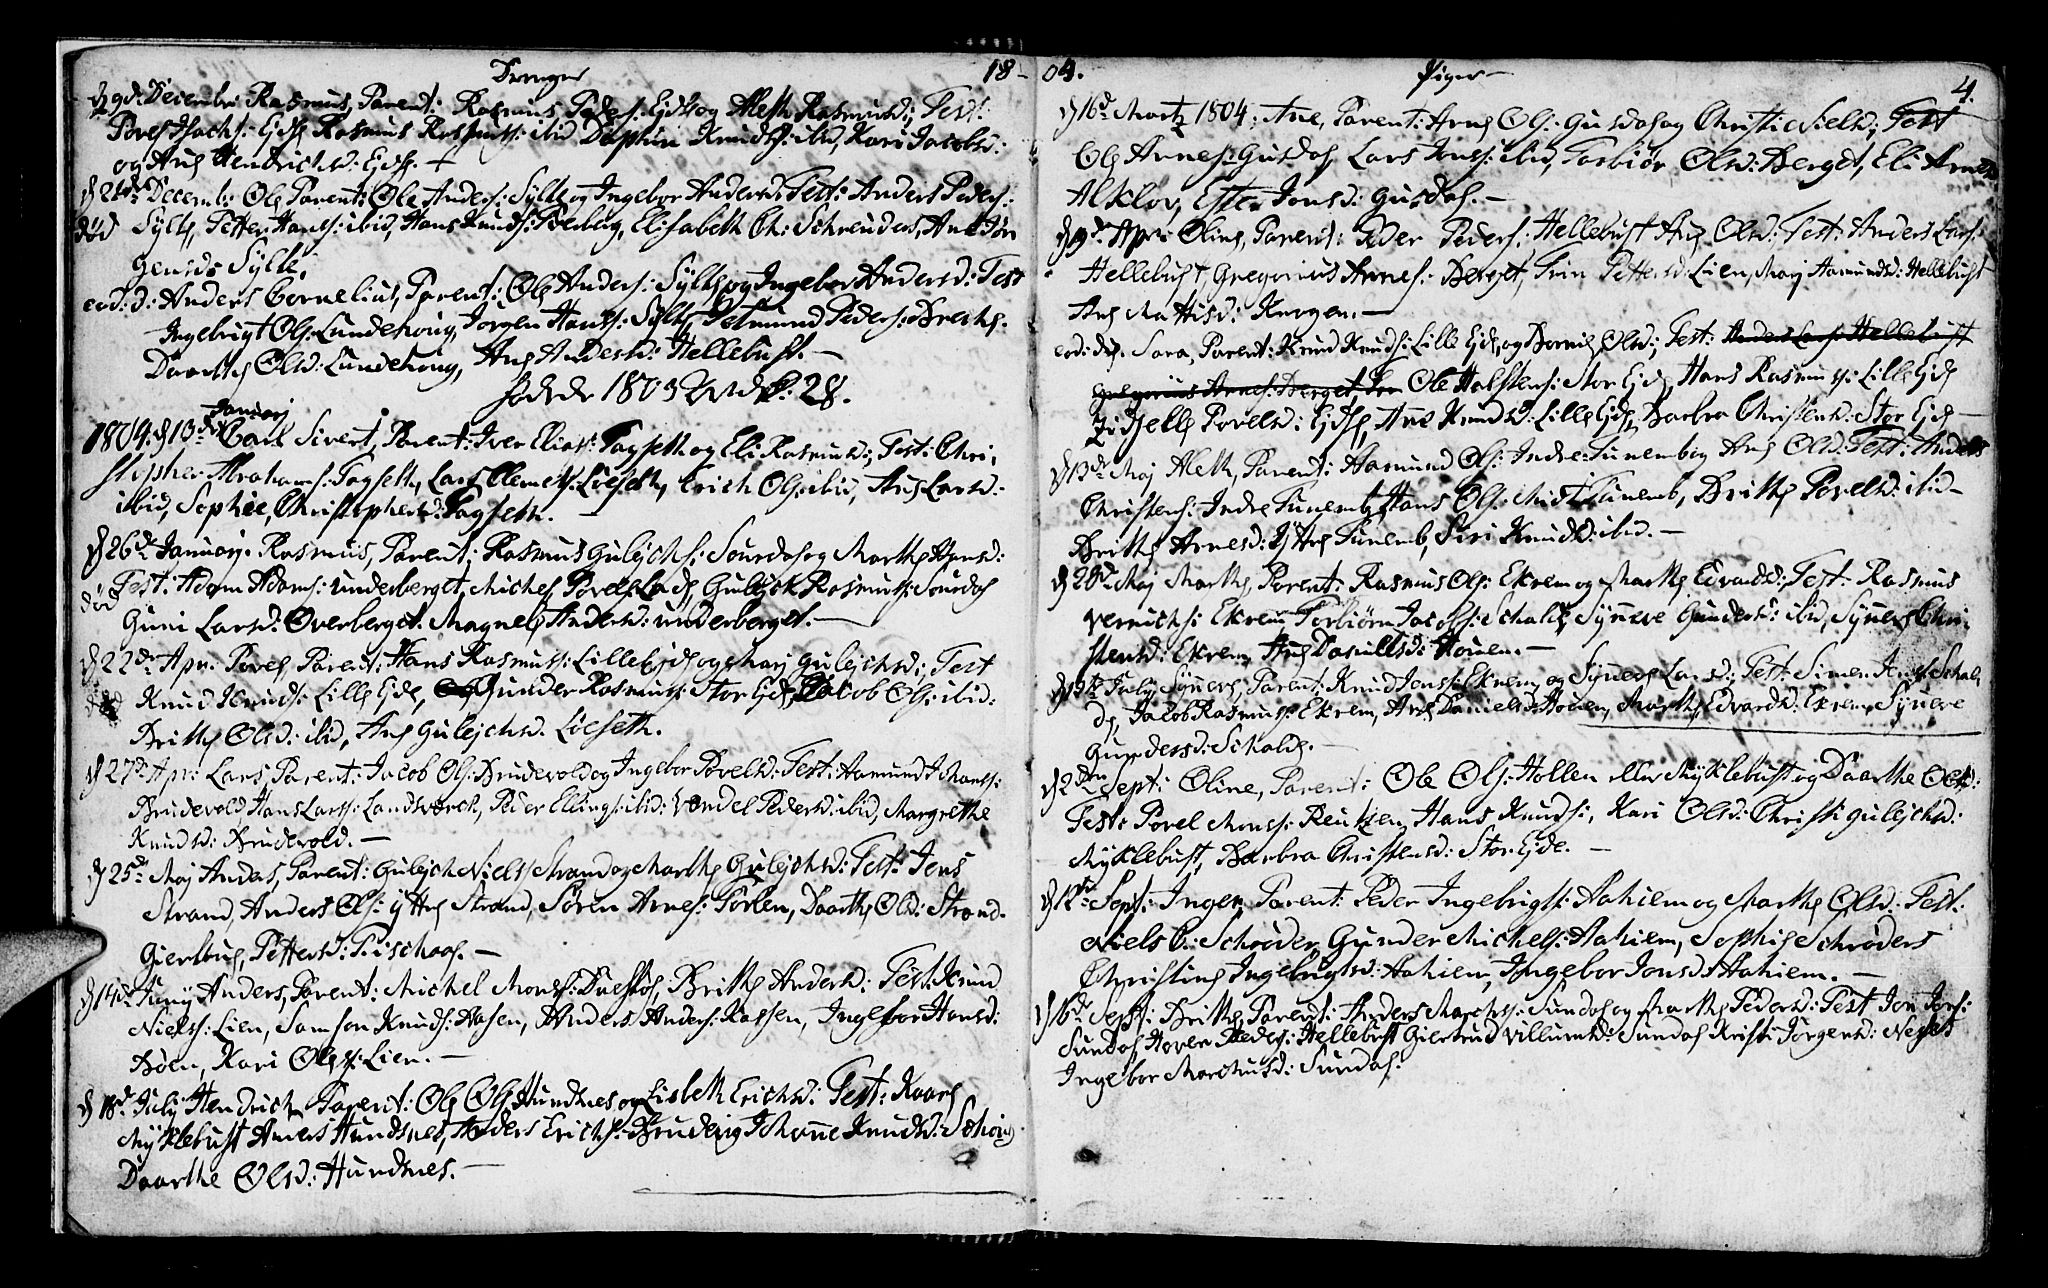 Drenge
d 9de Decembr: Rasmus, Parent: Rasmus Peders: Ejde og Aleth Rasmusd:, Test:
Povel Isachs: Ejde Rasmus Rasmuss: ibid Dorphin Knuds: ibid, Kari Jacobsd:
og Ane Hendrichsd: Ejde.
d 21de Decemb: Ole Parent: Ole Anders: Sylte og Ingebor Andersd: Test: Anders Peders:
død Sylte, Petter Hanss: ibid, Hans Knuds: Elisabeth Ch: Schreuders, Ane Jør
gensd: Sylte.
eod: d: Anders Cornelius, Parent: Ole Anders: Sylte og Ingebor Andersd: Test
Ingebrigt Ols: Lundehoug, Jørgen Hanss: Sylte, Peders:
Daarthe Olsd: Lundehoug, Ane Andersd: Hellebust.
fødde 1803 28.
1804. d 13de Januarj Carl Sivert, Parent: Iver Elias: Fagseth og Eli Rasmusd:, Test: Chri,
stopher Abrahams: Fagseth, Lars Clemets: Lieseth, Erich Ols: ibid, Ane Larsd:
ibid, Sophie, Christophersd: Fagseth.
d 26de Januarj. Rasmus, Parent: Rasmus Gulejchs: Sourdal og Marthe Hansd:
død Test: Adam Adams: underberget, Michel Povels: Lade Gulejch Rasmuss: Sourdal
Guni Larsd: Overberget. Magnel Andersd: underberget.
d 22de Apr. Povel, Parent: Hans Rasmuss: Lille Ejde og Marj Gulejchsd:, Test
Knud Knuds: Lille Ejde, Gunder Rasmuss: Stor Ejde, Jacob Ols: ibid:
Brithe Olsd: ibid, Ane Gulejchsd. Lieseth.
d 27de Apr: Lars, Parent: Jacob Ols: Brudevold og Ingebor Povelsd: Test: Aamund Johans:
Brudevold Hans Larss: Landsværch, Peder Ellings: ibid: Vendel Pedersd: ibid, Margrethe
Knudsd: Brudevold.
d 25de Maj Anders, Parent: Gulejch Niels: Strand og Marthe Gulejchsd: Test: Jens
Strand, Anders Ols: Ytre Strand, Søren Arnes: Daarthe Olsd: Strand.
Giertrud, Pettersd: Fischaas.
d 14de Junj Anders, Parent: Michel Mons: Duestøl, Brithe Andersd: Test: Knud
Niels: Lien, Samson Knuds: Aasen, Anders Anders: Ingebor Hansd:
Bøen, Kari Olsd: Lien.
d 18de July Hendrich Parent: Ole Ols: Hundsnes og Lisbeth Erichsd: Test: Kaare
Myklebust Anders Hundsnes, Anders Erichs: Brudevig Johanne Knudsd:
Daarthe Olsd: Hundsnes.
18-
04.
Piger
4.
d 16de Martz 1804, Ane, Parent: Arne Ols: Gusdal og Christi Nielsd:, Test
Ole Arnes: Gusdal Lars Jons: ibid, Torbiør Olsd: Berget, Eli Arnesd:
Alklov, Ester Jonsd: Gusdal.
d 9de Apr: Oline, Parent: Peder Peders: Hellebust Ane Olsd: Test: Anders Lars:
Hellebust, Gregorius Arnes: Berget, Siri Pettersd: Lien, Marj Aamundsd: Hellebust
Ane Mattisd: Krogen.
eod: die. Sara, Parent: Knud Knuds: Lille Ejde, og Bernie Olsd:, Test: Anders Lars: Hellebust
Gregorius Arnes: Berget, Ole Halstens: Stor Ejde, Hans Rasmuss: Lille Ejde
Zidselle Povelsd: Ejde, Ane Knudsd: Lille Ejde, Barbra Christensd: Stor Ejde
d 13de Maj Aleth, Parent: Aamund Ols: Indre Tunemb: og Ane Olsd: Test: Anders
Christens: Indre Tunemb, Hans Ols: Midt Tunemb, Brithe Povelsd: ibid
Brithe Arnesd: Ytre Tunemb, Siri Knudsd: ibid.
d 20de Maj Marthe, Parent: Rasmus Ols: Ekrem og Marthe Edvardsd: Test: Rasmus
Vernichs: Ekrem Torbiørn Jacobs: Schalde, Synneve Gundersd: ibid, Synneve Chri,
stensd: Ekrem, Ane Danielsd: Houen.
d July Synneve, Parent: Knud Jens: Ekrem og Synneve Larsd: Test: Simen Schal,
de, Jacob Rasmuss: Ekrem, Ane Danielsd: Houen, Marthe Edvardsd: Ekrem, Synneve
Gundersd: Schalde.
d 2den Sept: Oline, Parent: Ole Ols: Hollen eller Myklebust og Daarthe Olsd:
Test: Povel Mons: Hans Knuds:, Kari Olsd: Christi Gulejchsd:
Myklebust, Barbra Christensd: Stor Ejde.
d 12te Sept: Inger, Parent: Peder Ingebrigts: Aahiem og Marthe Olsd: Test:
Niels C: Schrøder, Gunder Michels: Aahiem, Sophie Schrøders
Christine Ingebrigtsd: Aahiem, Ingebor Jonsd: Aahiem.
d 16de Sept: Brithe, Parent: Anders Marchuss: Sundal og Marthe Pedersd: Test Jon Jons:
Sundal Peders: Hellebust Giertrud Villumsd: Sundal Kristi Jørgensd: Neset
Ingebor Marchusd: Sundal.